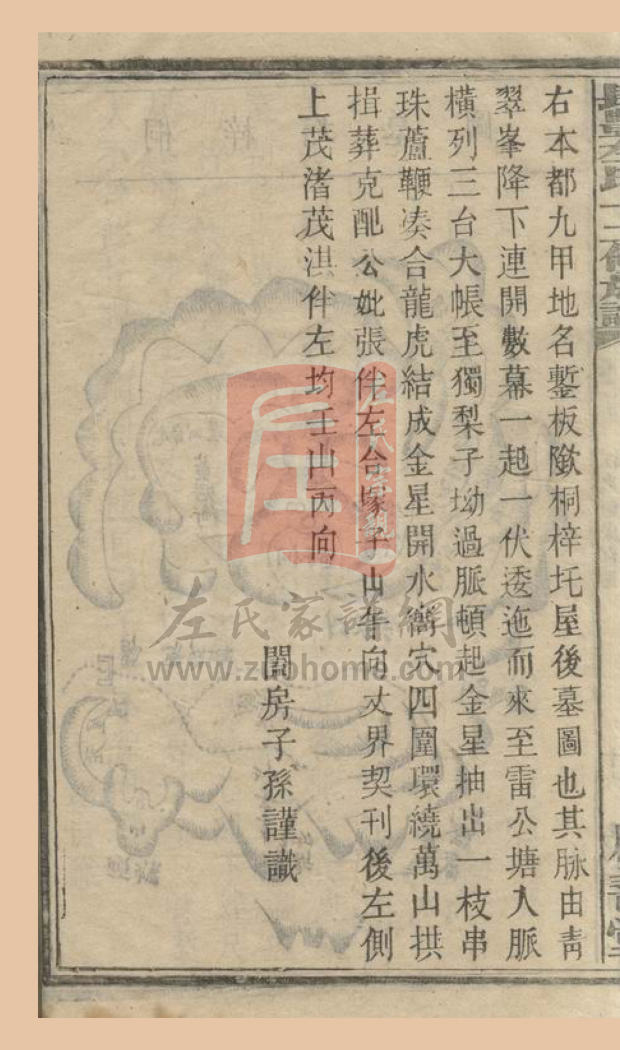 右本都九甲地名鏨板歘桐梓圫屋後墓圖也其脉由青
翠峯降下連開數幕一起一伏逶迤而來至雷公塘入脈
橫列三台大帳至獨梨子坳過脈頓起金星抽出一枝串
珠蘆鞭凑合龍虎結成金星開水嚮穴四圍環繞萬山拱
揖葬克配公妣張伴左合塚子山午向丈界契刊後左側
上茂渚茂洪伴左均壬山丙向
闔房子孫謹識
左氏家譜網
www.zuohome.com